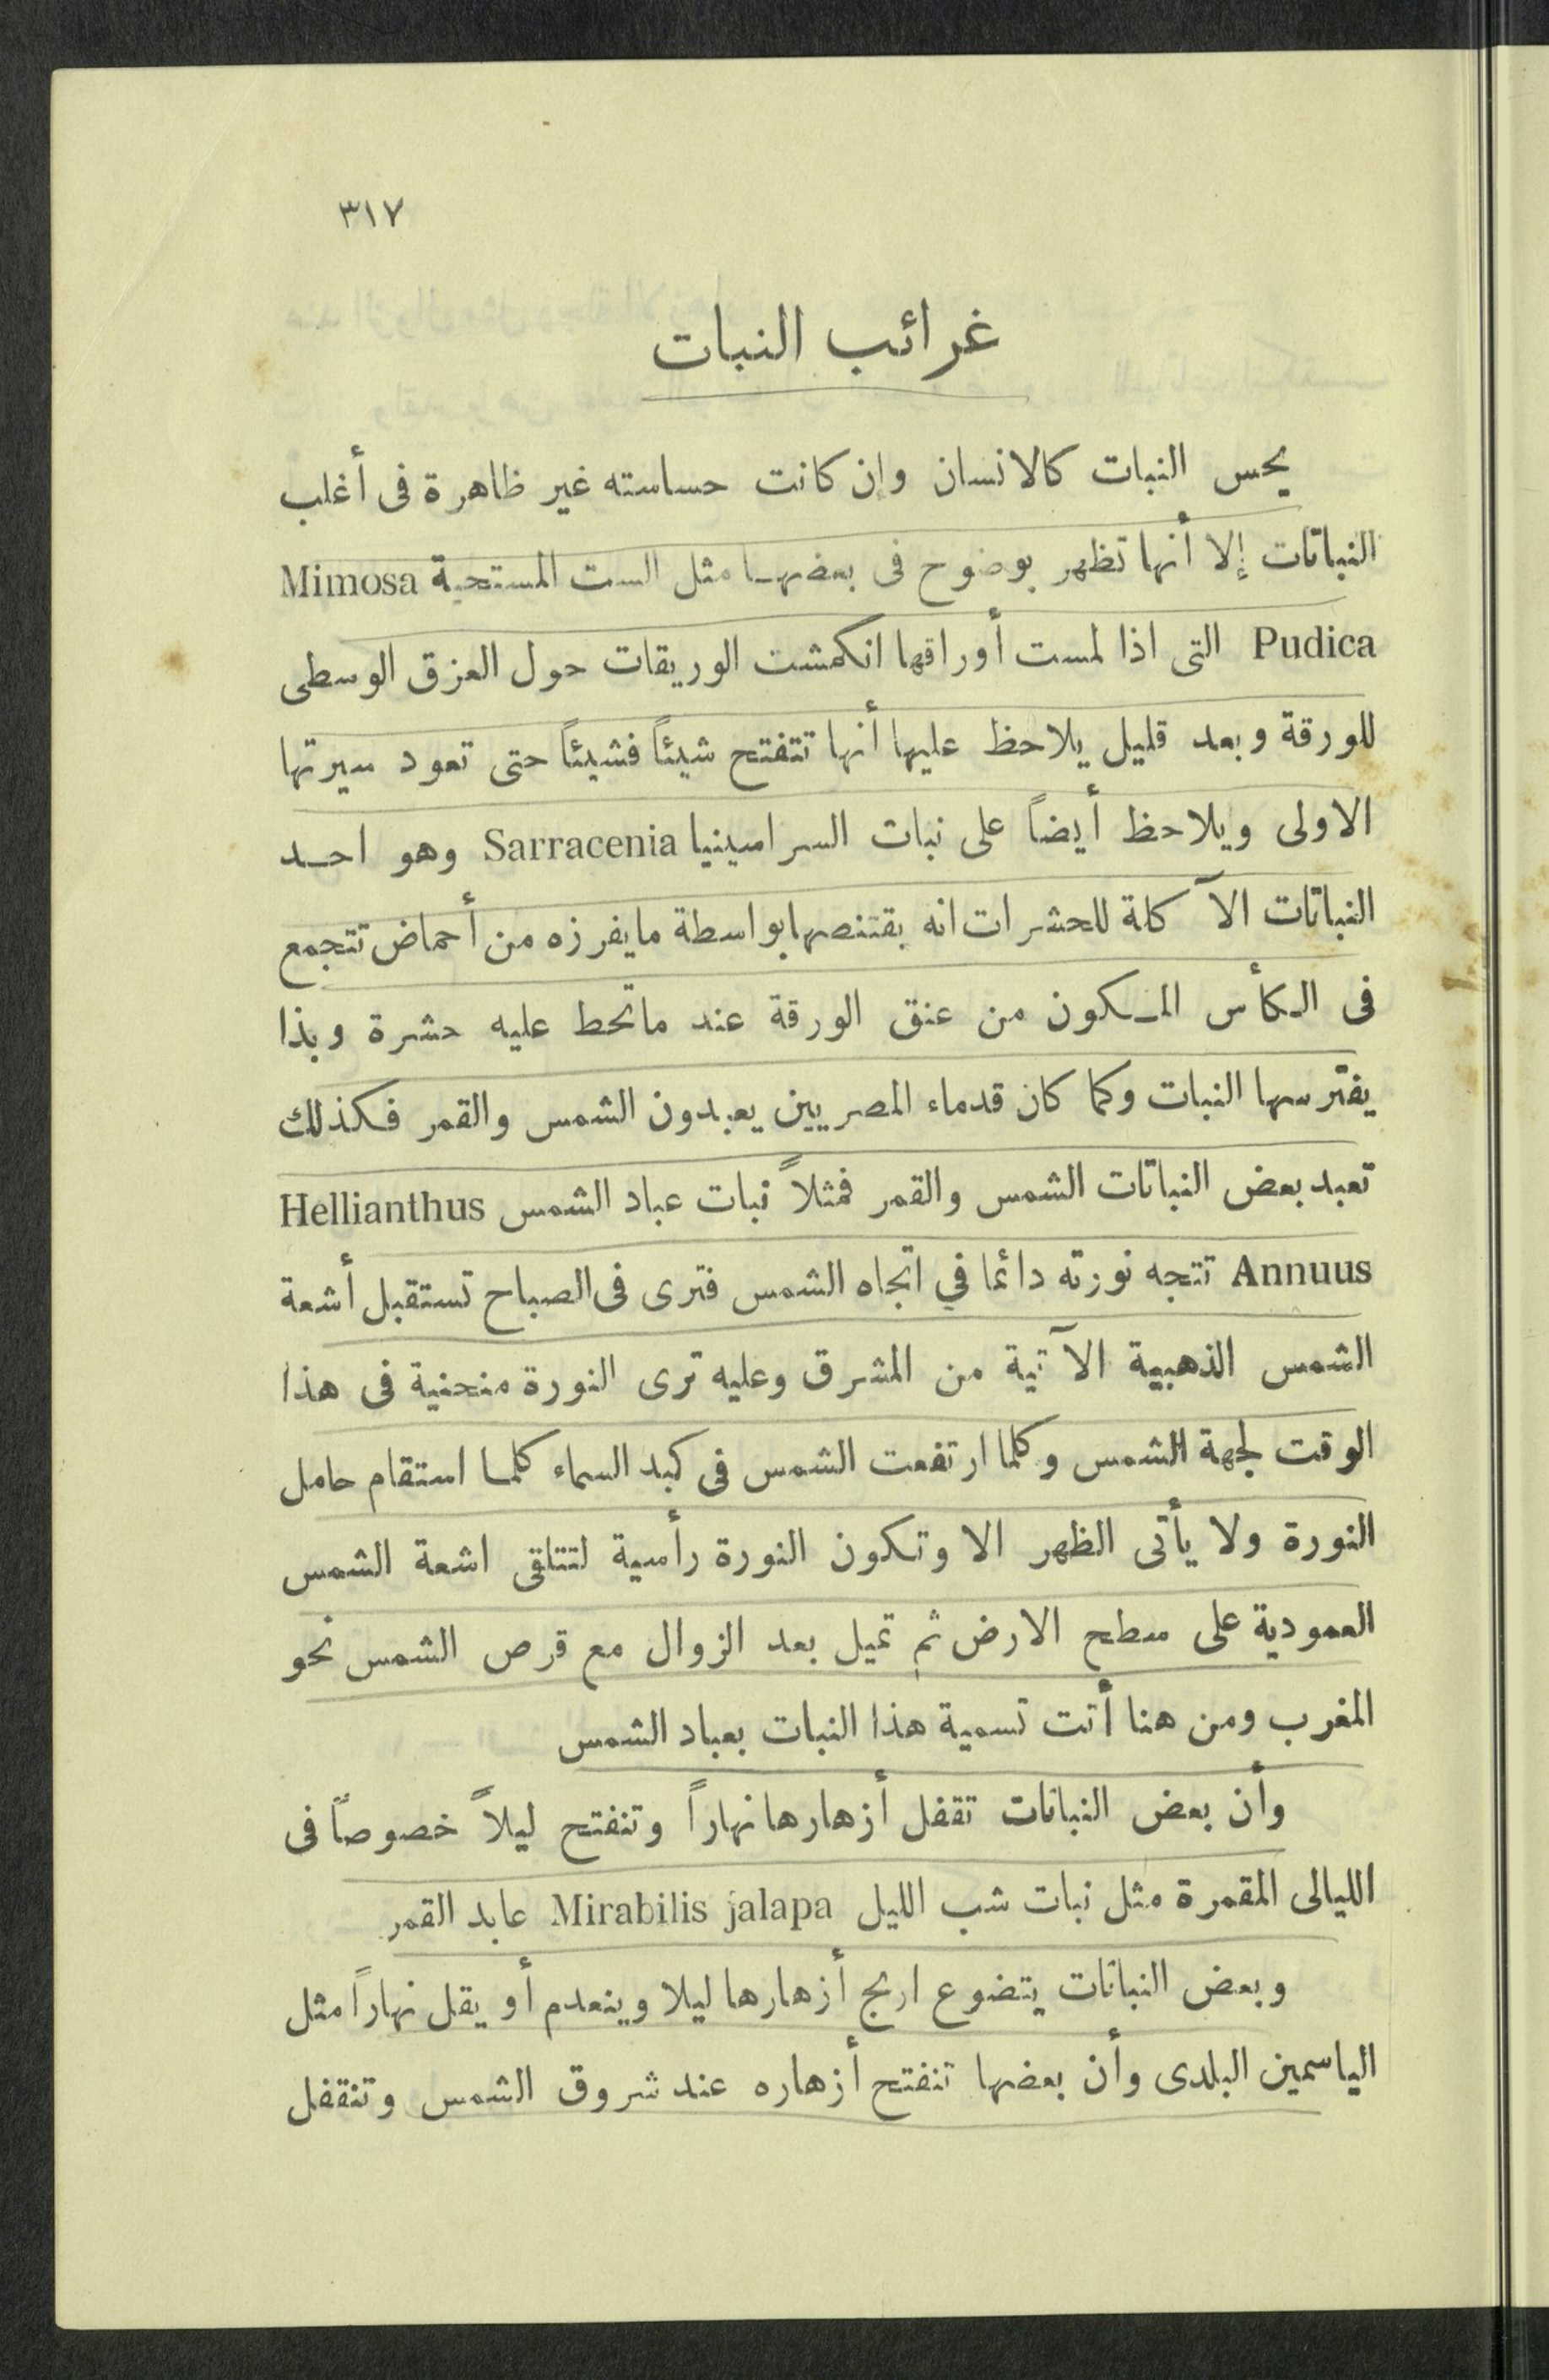 ٣١٧
غرائب النبات
يحس النبات كالانسان وإن كانت حساسته غير ظاهرة فى أغلب
النباتات إلا أنها تظهر بوضوح فى بعضها مثل الست المستحية Mimosa
Pudica التى اذا لمست أوراقها انكمشت الوريقات حول العزق الوسطى
للورقة وبعد قليل يلاحظ عليها أنها تتفتح شيئاً فشيئاً حتى تعود سيرتها
الاولى ويلاحظ أيضاً على نبات السراسينيا Sarracenia وهو احد
النباتات الآ كلة للحشرات انه يقتنصها بواسطة مايفرزه من أحماض تتجمع
فى الكأس المكون من عنق الورقة عند ماتحط عليه حشرة وبذا
يفترسها النبات وكما كان قدماء المصريين يعبدون الشمس والقمر فكذلك
تعبد بعض النباتات الشمس والقمر فمثلاً نبات عباد الشمس Hellianthus
Annuus تتجه نورته دائما في اتجاه الشمس فترى فى الصباح تستقبل أشعة
الشمس الذهبية الآتية من المشرق وعليه ترى النورة منحنية فى هذا
الوقت لجهة الشمس وكلما ارتفعت الشمس فى كبد السماء كلما استقام حامل
النورة ولا يأتى الظهر الا وتكون النورة رأسية لتتلقى اشعة الشمس
العمودية على سطح الارض ثم تميل بعد الزوال مع قرص الشمس نحو
المغرب ومن هنا أتت تسمية هذا النبات بعباد الشمس
وأن بعض النباتات تقفل أزهارها نهاراً وتنفتح ليلاً خصوصاً فى
الليالى المقمرة مثل نبات شب الليل Mirabilis jalapa عابد القمر
وبعض النباتات يتضوع اريج أزهارها ليلا وينعدم أو يقل نهاراً مثل
الياسمين البلدى وأن بعضها تنفتح أزهاره عند شروق الشمس وتنقفل